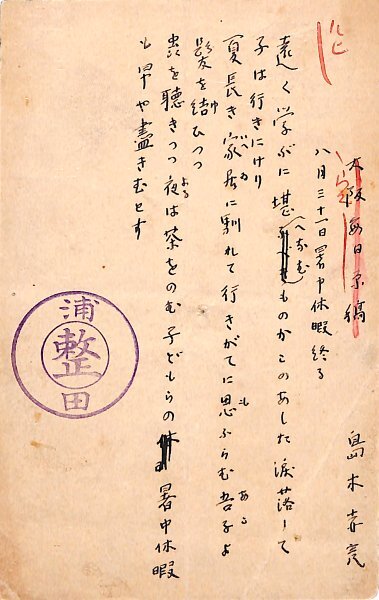 ルビ
大阪毎日原稿
島木赤彦
八月三十一日暑中休暇終る
遠く学ぶに堪へなむものかこのあした涙落して
子は行きにけり
夏長き家居に馴れて行きがてに思ふらむ吾子よ
髪を結ひつつ
虫を聴きつつ夜は茶をのむ子どもらの暑中休暇
も早や盡きむとす
浦
整
田